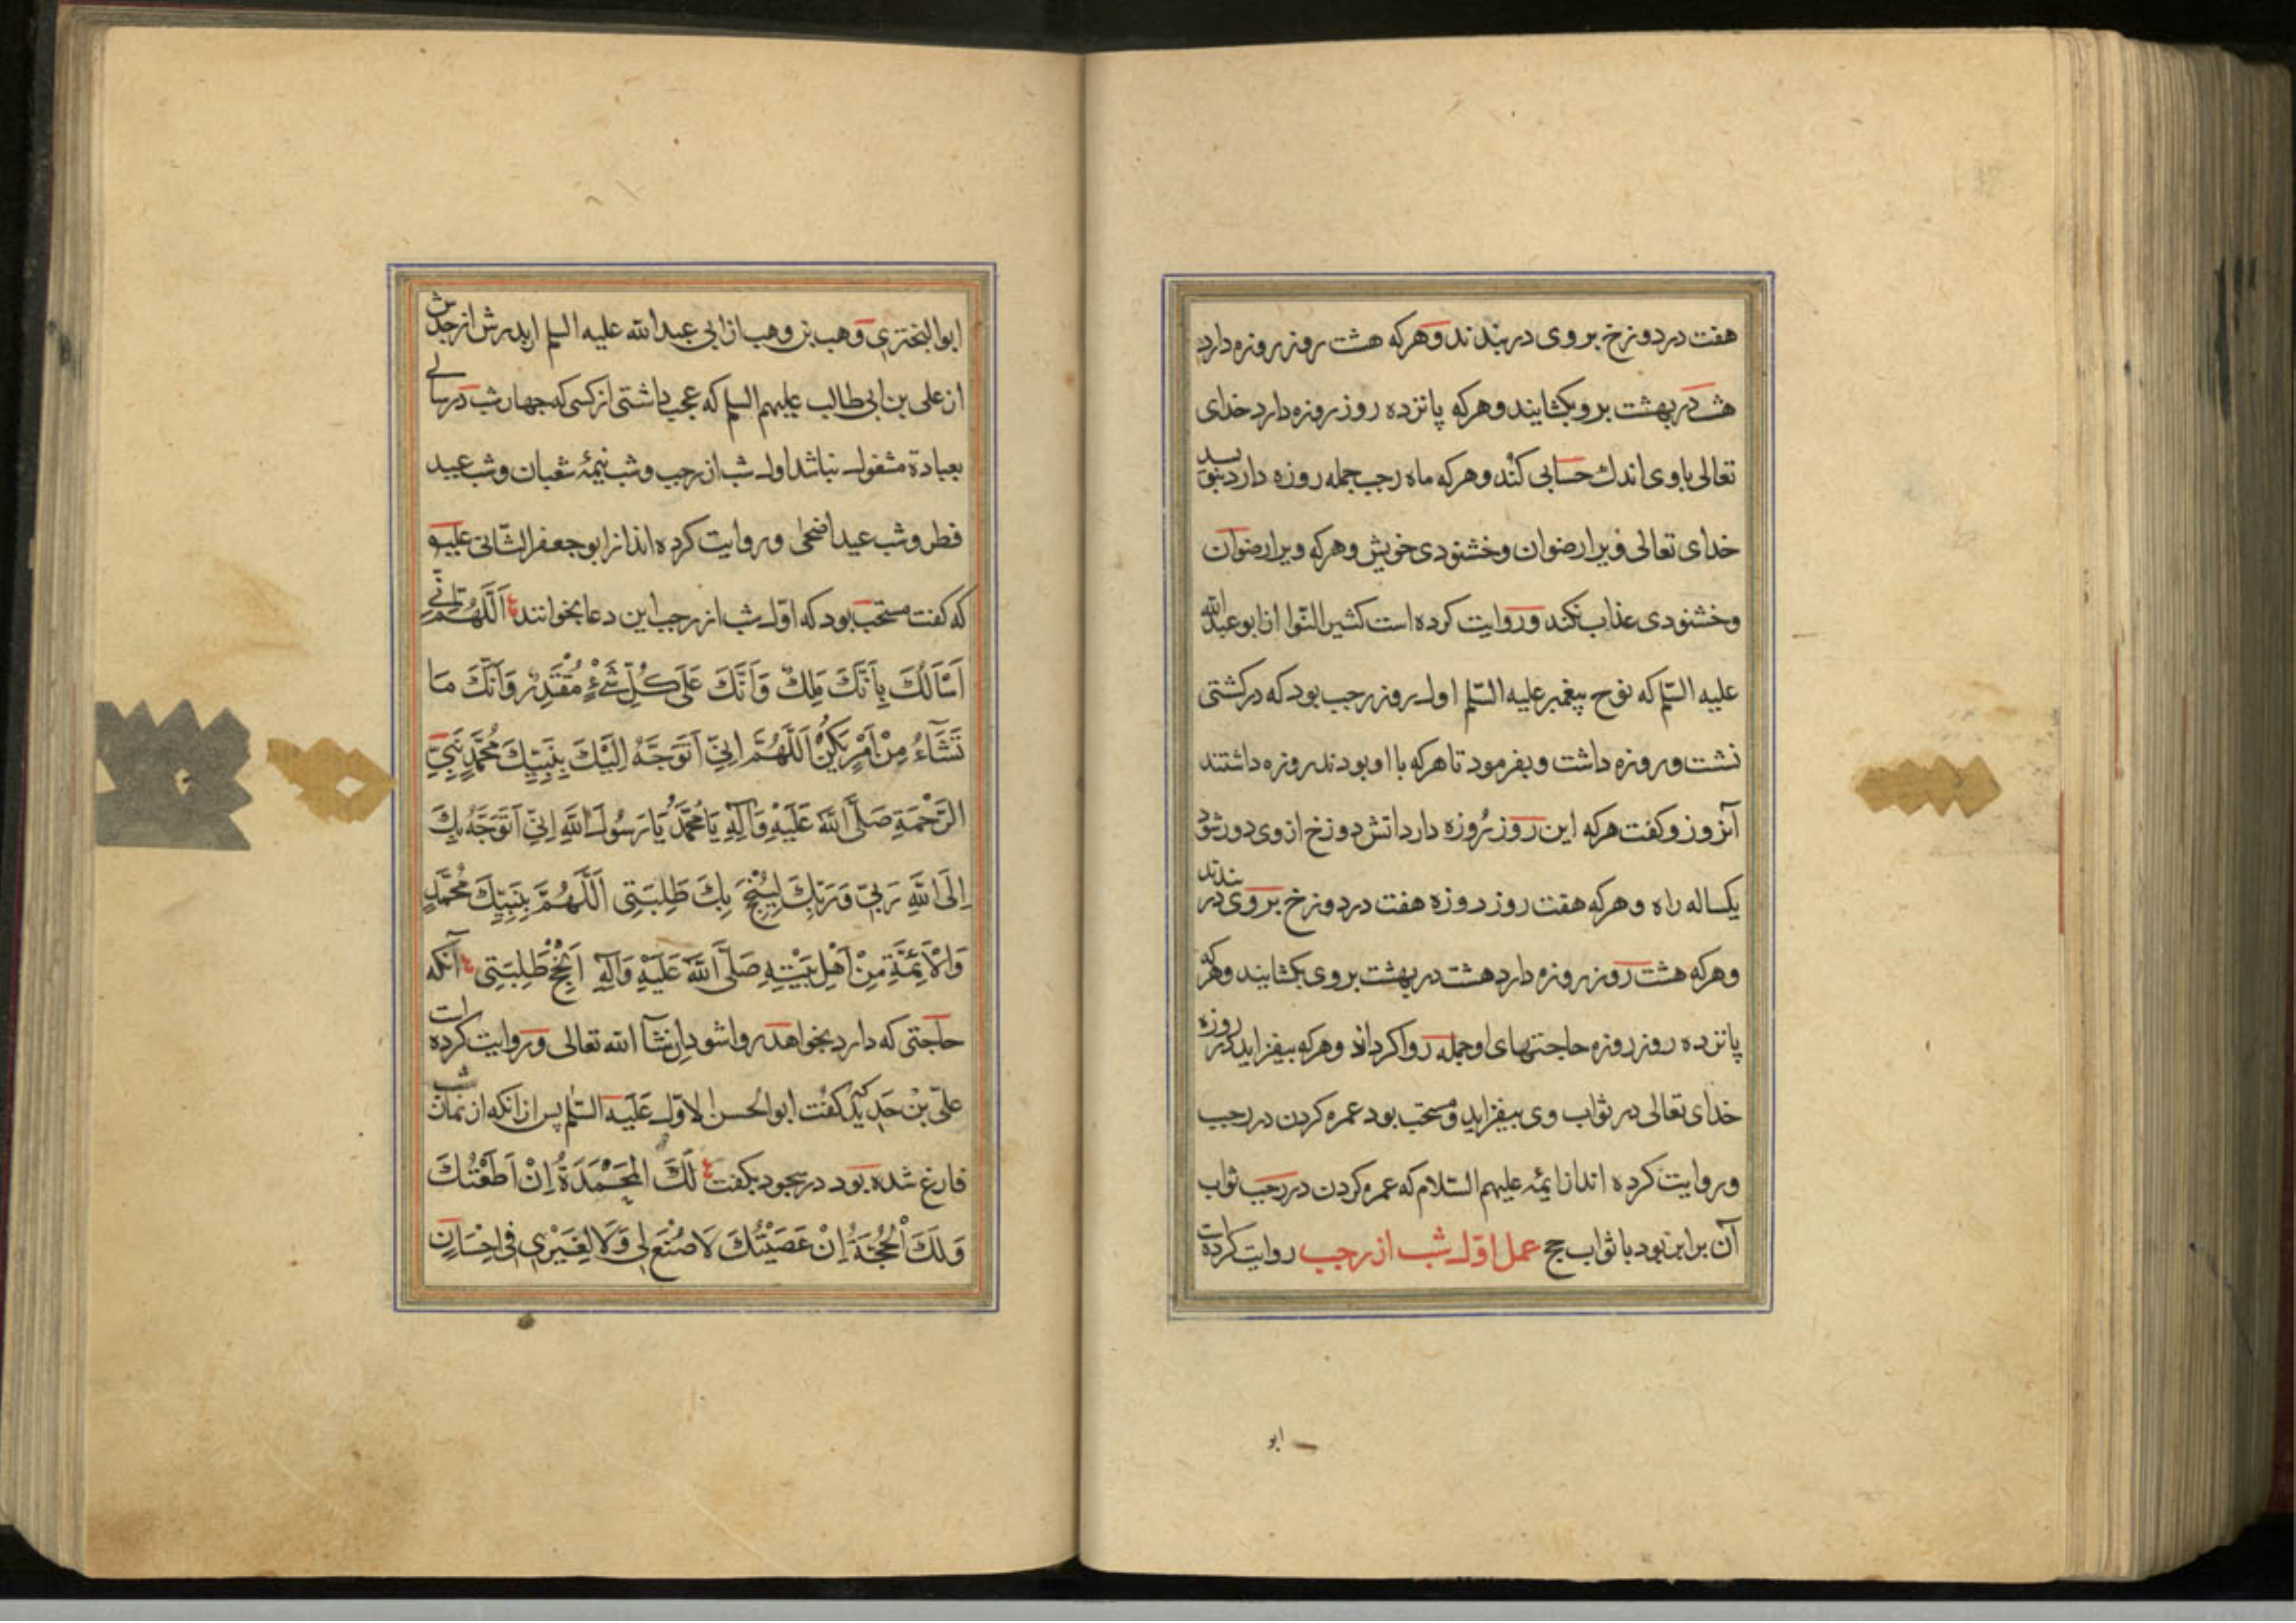 هفت در دوزخ بروی در بندند وهرکه هشت روز روزه دارد
هشت در بهشت برو بکشایند وهرکه پانزده روز روزه دارد خدای
تعالی باوی اندك حسابی کند وهرکه ماه رجب جمله روزه دارد بنویسد
خدای تعالی ویرا رضوان وخشنودی خویش وهرکه ویرا رضوان
وخشنودی عذاب نکند وروایت کرده است کثیر النوا از ابو عبدالله
علیه السّلم که نوح پیغمبر علیه السّلم اول روز رجب بود که در کشتی
نشت وروزه داشت وبفرمود تا هرکه با او بودند روزه داشتند
آنروز وکفت هرکه این روز روزه دارد اتش دوزخ از وی دور شود
یکساله راه وهرکه هفت روز روزه هفت در دوزخ بروی در بندند
وهرکه هشت روز روزه دارد هشت در بهشت بروی بکشایند وهرکه
پانزده روز روزه حاجتهای او جمله روا کرداند وهرکه بیفزاید در روزه
خدای تعالی در ثواب وی بیفزاید ومستحب بود عمره کردن در رجب
وروایت کرده اند از ایمّه علیهم السّلام که عمره کردن در رجب ثواب
آن برابر بود با ثواب حج عمل اوّل شب از رجب روایت کرده است
ابو
ابو البختری وهب بن وهب از ابی عبدالله علیه السلم از پدرش از جدش
از علی بن ابی طالب علیهم السلم که عجب داشتی از کسی که چهار شب در سالی
بعبادة مشغول نباشد اول شب از رجب وشب نیمهٔ شعبان وشب عید
فطر وشب عید اضحی وروایت کرده اند از ابو جعفر الثّانی علیه
که کفت مستحب بود که اوّل شب از رجب این دعا بخوانند اَللّٰهُمَّ اِنّی
اَسْاَلُكَ بِاَنَّكَ مَلِكٌ وَاَنَّكَ عَلَی كُلِّ شَیْءٍ مُقْتَدِرٌ وَاَنَّكَ مَا
تَشَآءُ مِنْ اَمْرٍ یَكُنْ اَللّٰهُمَّ اِنِّی اَتَوَجَّهُ اِلَیْكَ بِنَبِیِّكَ مُحَمَّدٍ نَبِیِّ
الرَّحْمَةِ صَلَّی اللّٰهُ عَلَیْهِ وَآلِهِ یَا مُحَمَّدُ یَا رَسُولَ اللّٰهِ اِنِّی اَتَوَجَّهُ بِكَ
اِلَی اللّٰهِ رَبِّی وَرَبِّكَ لِیُنْجِحَ بِكَ طَلِبَتِی اَللّٰهُمَّ بِنَبِیِّكَ مُحَمَّدٍ
وَالْاَئِمَّةِ مِنْ اَهْلِ بَیْتِهِ صَلَّی اللّٰهُ عَلَیْهِ وَآلِهِ اَنْجِحْ طَلِبَتِی آنکه
حاجتی که دارد بخواهد روا شود اِن شآ الله تعالی وروایت کرده است
علیّ بْن حَدِید که کفت ابو الحسن الاوّل عَلَیه السّلم پس از انکه از نماز شب
فارغ شده بود در سجود بکفت لَكَ الْمَحْمَدَةُ اِنْ اَطَعْتُكَ
وَلَكَ الْحُجَّةُ اِنْ عَصَیْتُكَ لَا صُنْعَ لِی وَلَا لِغَیْرِی فِی اِحْسَانٍ